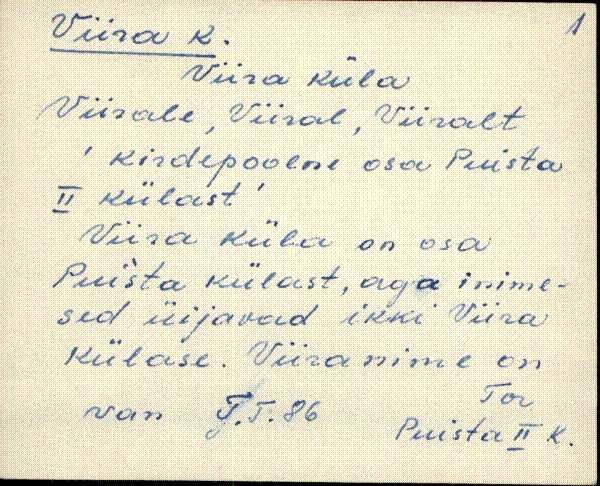 1
Viira k.
Viira küla
Viirale, Viiral, Viiralt
' kirdepoolne osa Puista
II külast'
Viira küla on osa
Puista külast, aga inime-
sed üijavad ikki Viira
külase. Viiranime on
van T.T. 86
Tor
Puista II k.